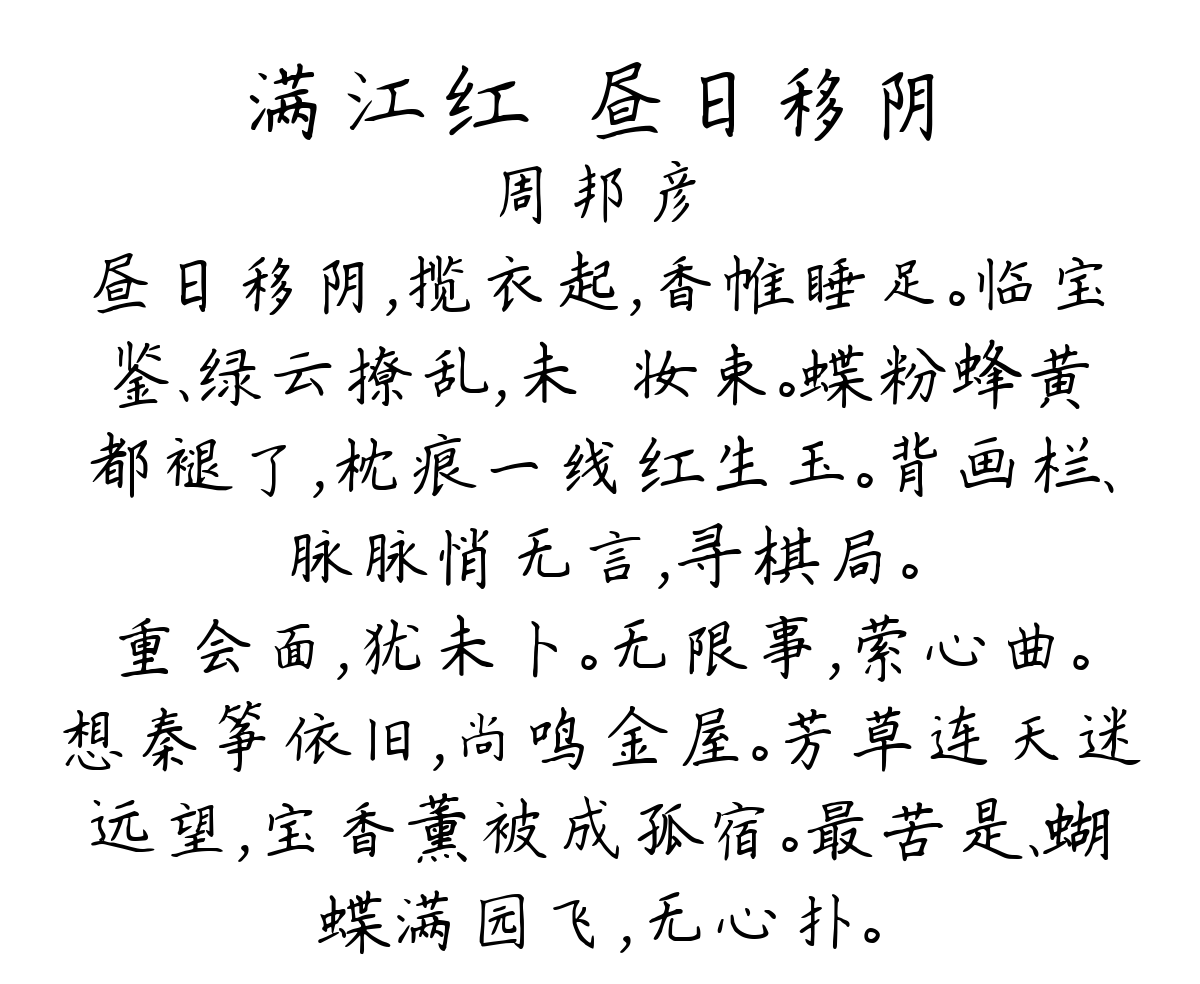 满江红 昼日移阴
周邦彦
昼日移阴,揽衣起,香帷睡足。临宝
鉴、绿云撩乱,未 妆束。蝶粉蜂黄
都褪了,枕痕一线红生玉。背画栏、
脉脉悄无言,寻棋局。
重会面,犹未卜。无限事,萦心曲。
想秦筝依旧,尚鸣金屋。芳草连天迷
远望,宝香薰被成孤宿。最苦是、蝴
蝶满园飞,无心扑。